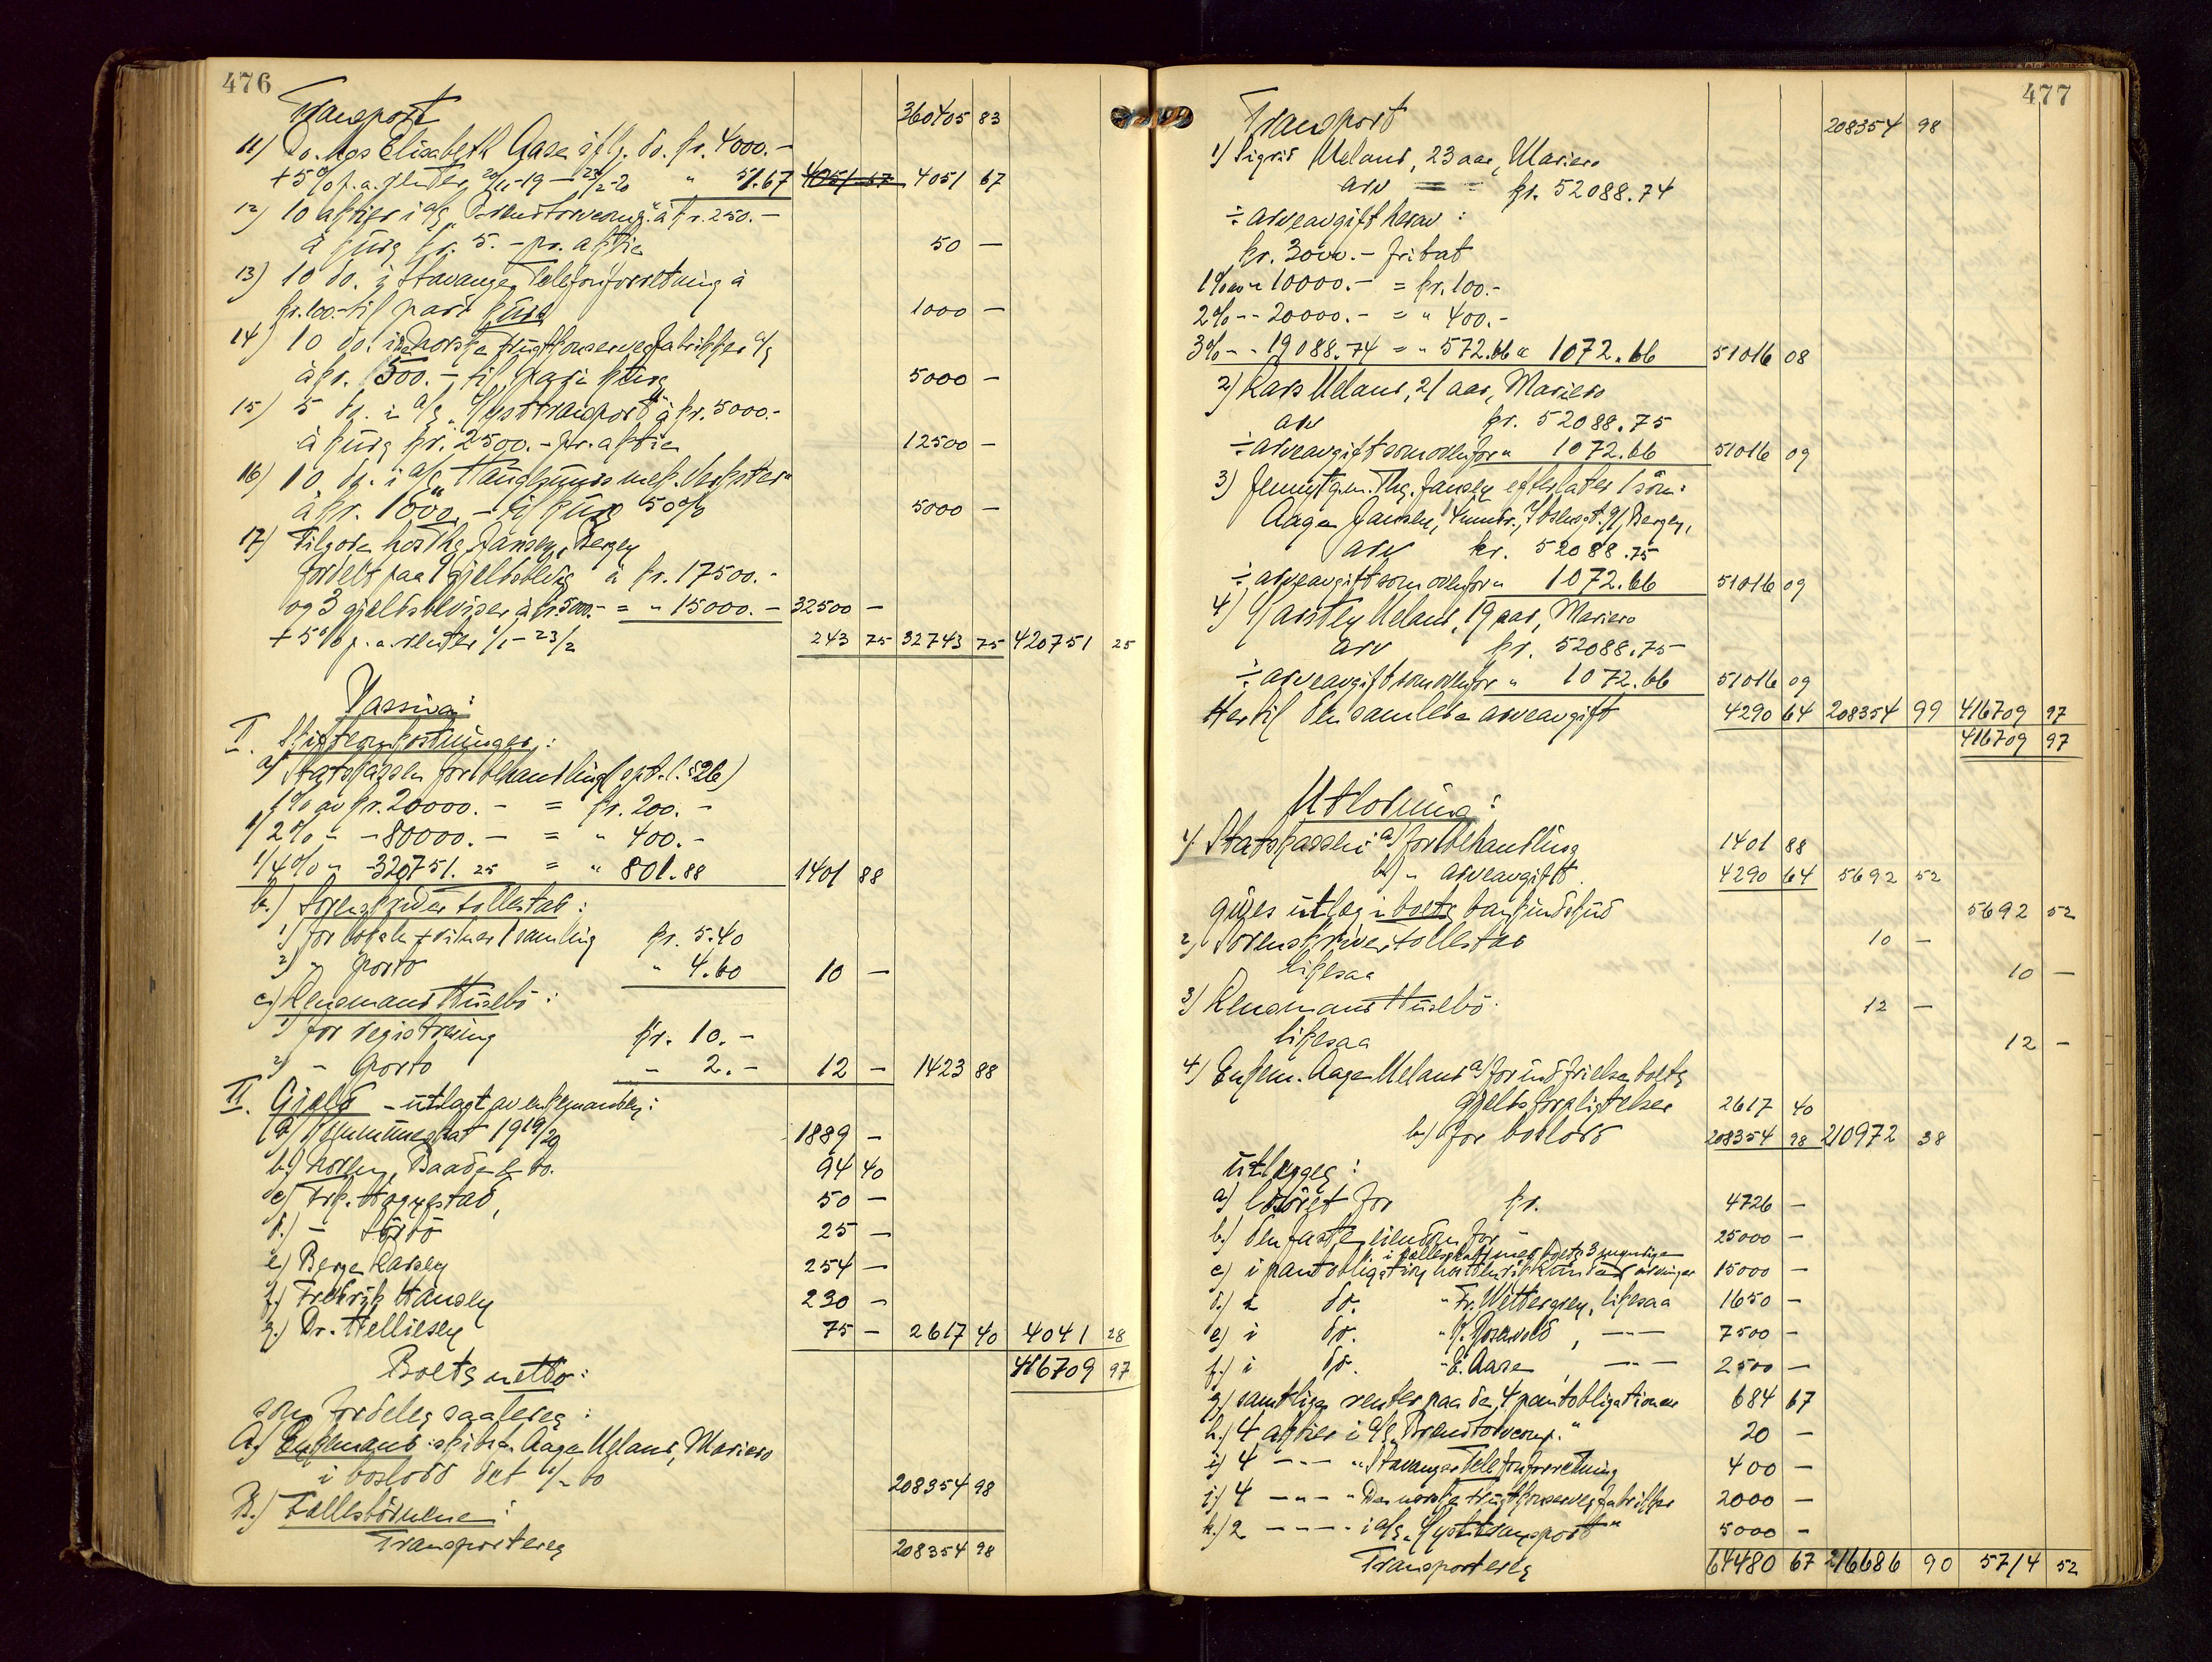 476
Transport 360405 83
11) Do. hos Elisabeth Aase iflg. do. kr. 4000.-
+ 5% p.a. renter 20/11-19 - 23/2-20 " 51.67 4051 67 4051 67
12) 10 aktier i a/s "Brendtorvcomp." à kr. 250.-
à kurs kr. 5.- pr. aktie 50 -
13) 10 do. i Stavanger Telefonforretning à
kr. 100.- til pari kurs 1000 -
14) 10 do. i De norske Frugtkonservesfabrikker a/s
à kr. 500.- til pari kurs 5000 -
15) 5 do. i a/s "Kysttransport" à kr. 5000.-
à kurs kr. 2500.- pr. aktie 12500 -
16) 10 do. i a/s "Haugesunds mek. Verksted"
à kr. 1000.- til kurs 50% 5000 -
17) Tilgode hos Thg. Jansen, Bergen
fordelt paa 1 gjeldsbevis à kr. 17500.-
og 3 gjeldsbeviser à kr. 5000.- = " 15000.- 32500 -
+ 5% p.a. renter 1/1 - 23/2 243 75 32743 75 420751 25
Passiva:
I. Skifteomkostninger:
a) Statskassen for behandling (sptl. l. § 26)
1% av kr. 20000.- = kr. 200.-
1/2% " - 80000.- = " 400.-
1/4% " - 320751.25 = " 801.88 1401 88
b.) Sorenskriver Tollestad:
1) for lokale + vidner 1 samling kr. 5.40
2) " porto " 4.60 10 -
c) Lensmand Huslebø:
1) for registrering kr. 10.-
2) " porto " 2.- 12 - 1423 88
II. Gjeld - utlagt av enkemanden:
a) Kommuneskat 1919/20 1889 -
b.) Norsen, Baade & Co. 94 40
c) Frk. Hognestad, 50 -
d.) " Førbø 25 -
e) Berge Larsen 254 -
f.) Fredrik Hansen 230 -
g.) Dr. Helliesen 75 - 2617 40 4041 28
Boets netto: 416709 97
som fordeles saaledes:
A.) Enkemand skibsr. Aage Meland, Mariero
i boslodd det 1/2 bo 208354 98
B.) Fællesbørnene:
Transporteres 208354 98
477
Transport 208354 98
1) Sigrid Meland, 23 aar, Mariero
arv = - kr. 52088.74
÷ arveavgift herav:
kr. 3000.- fribat
1% av " 10000.- = kr. 100.-
2% - - 20000.- = " 400.-
3% - - 19088.74 = " 572.66 " 1072.66 51016 08
2) Lars Meland, 21 aar, Mariero
arv kr. 52088.75
÷ arveavgift som ovenfor " 1072.66 51016 09
3) Jenny t.g.m. Thg. Jansen efterlater 1 søn:
Aage Jansen, 4 mndr., Bergen,
arv kr. 52088.75
÷ arveavgift som ovenfor " 1072.66 51016 09
4) Karsten Meland, 19 aar, Mariero
arv kr. 52088.75
÷ arveavgift som ovenfor " 1072.66 51016 09
Hertil den samlede arveavgift 4290 64 208354 99 416709 97
416709 97
Utlodning:
1) Statskassen: a) for behandling 1401 88
b) " arveavgift 4290 64 5692 52
gives utlæg i boets bankindskud 5692 52
2) Sorenskriver Tollestad 10 -
likesaa 10 -
3) Lensmand Huslebø: 12 -
likesaa 12 -
4) Enkem. Aage Meland a) for indfrielse boets
gjeldsforpligtelser 2617 40
b) for boslodd 208354 98 210972 38
utlægges:
a) løsøret for kr. 4726 -
b.) den faste eiendom for - 25000 -
i fællesskap med boets 3 myndige
c) i pantobligation arvinger 15000 -
d.) i do. " Fr. Wettergren, likesaa 1650 -
e) i do. " K. Rosseved, -"- 7500 -
f.) i do. " E. Aase, -"- 2500 -
g) samtlige renter paa de 4 pantobligationer 684 67
h.) 4 aktier i A/S "Brendtorvcomp." 20 -
i) 4 -"- " Stavanger Telefonforretning 400 -
j) 4 -"- " De norske Frugtkonservesfabrikker 2000 -
k.) 2 -"- i a/s "Kysttransport" 5000 -
Transporteres 64480 67 216686 90 5714 52